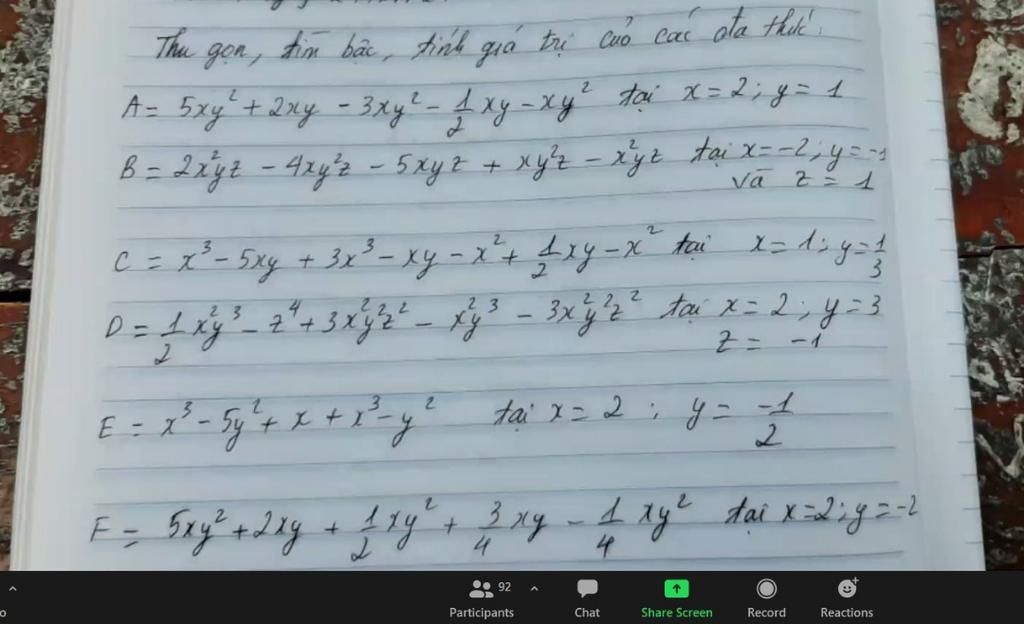 Thu gọn, tìm bậc, tính giá trị của các đa thức:
A = 5xy² + 2xy - 3xy² - 1/2 xy - xy² tại x = 2; y = 1
B = 2x²yz - 4xy²z - 5xyz + xy²z - x²yz tại x = -2; y = -1
và z = 1
C = x³ - 5xy + 3x³ - xy - x² + 1/2 xy - x² tại x = 1; y = 1/3
D = 1/2 x²y³ - z⁴ + 3x²y²z² - x²y³ - 3x²y²z² tại x = 2; y = 3
z = -1
E = x³ - 5y² + x + x³ - y² tại x = 2; y = -1/2
F = 5xy² + 2xy + 1/2 xy² + 3/4 xy - 1/4 xy² tại x = 2; y = -2
92
Participants Chat Share Screen Record Reactions